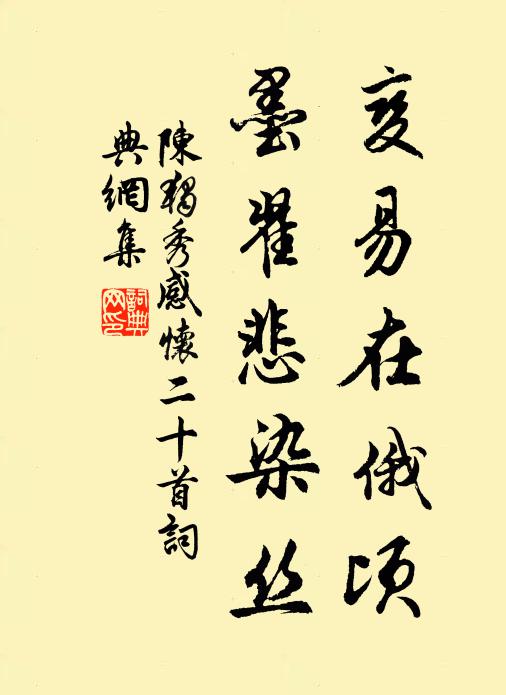 变易在俄顷
墨翟悲染丝
陳獨秀感懷二十首詞
典網集
詞典
网印